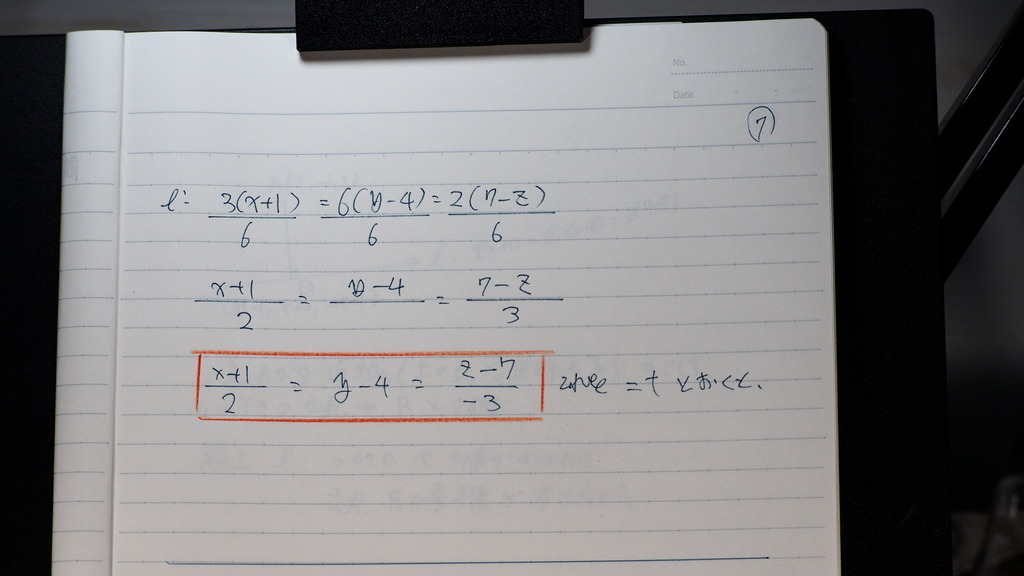 No.
Date
⑦
l: 3(x+1)/6 = 6(y-4)/6 = 2(7-z)/6
x+1/2 = y-4/ = 7-z/3
x+1/2 = y-4 = z-7/-3 これを =t とおくと.